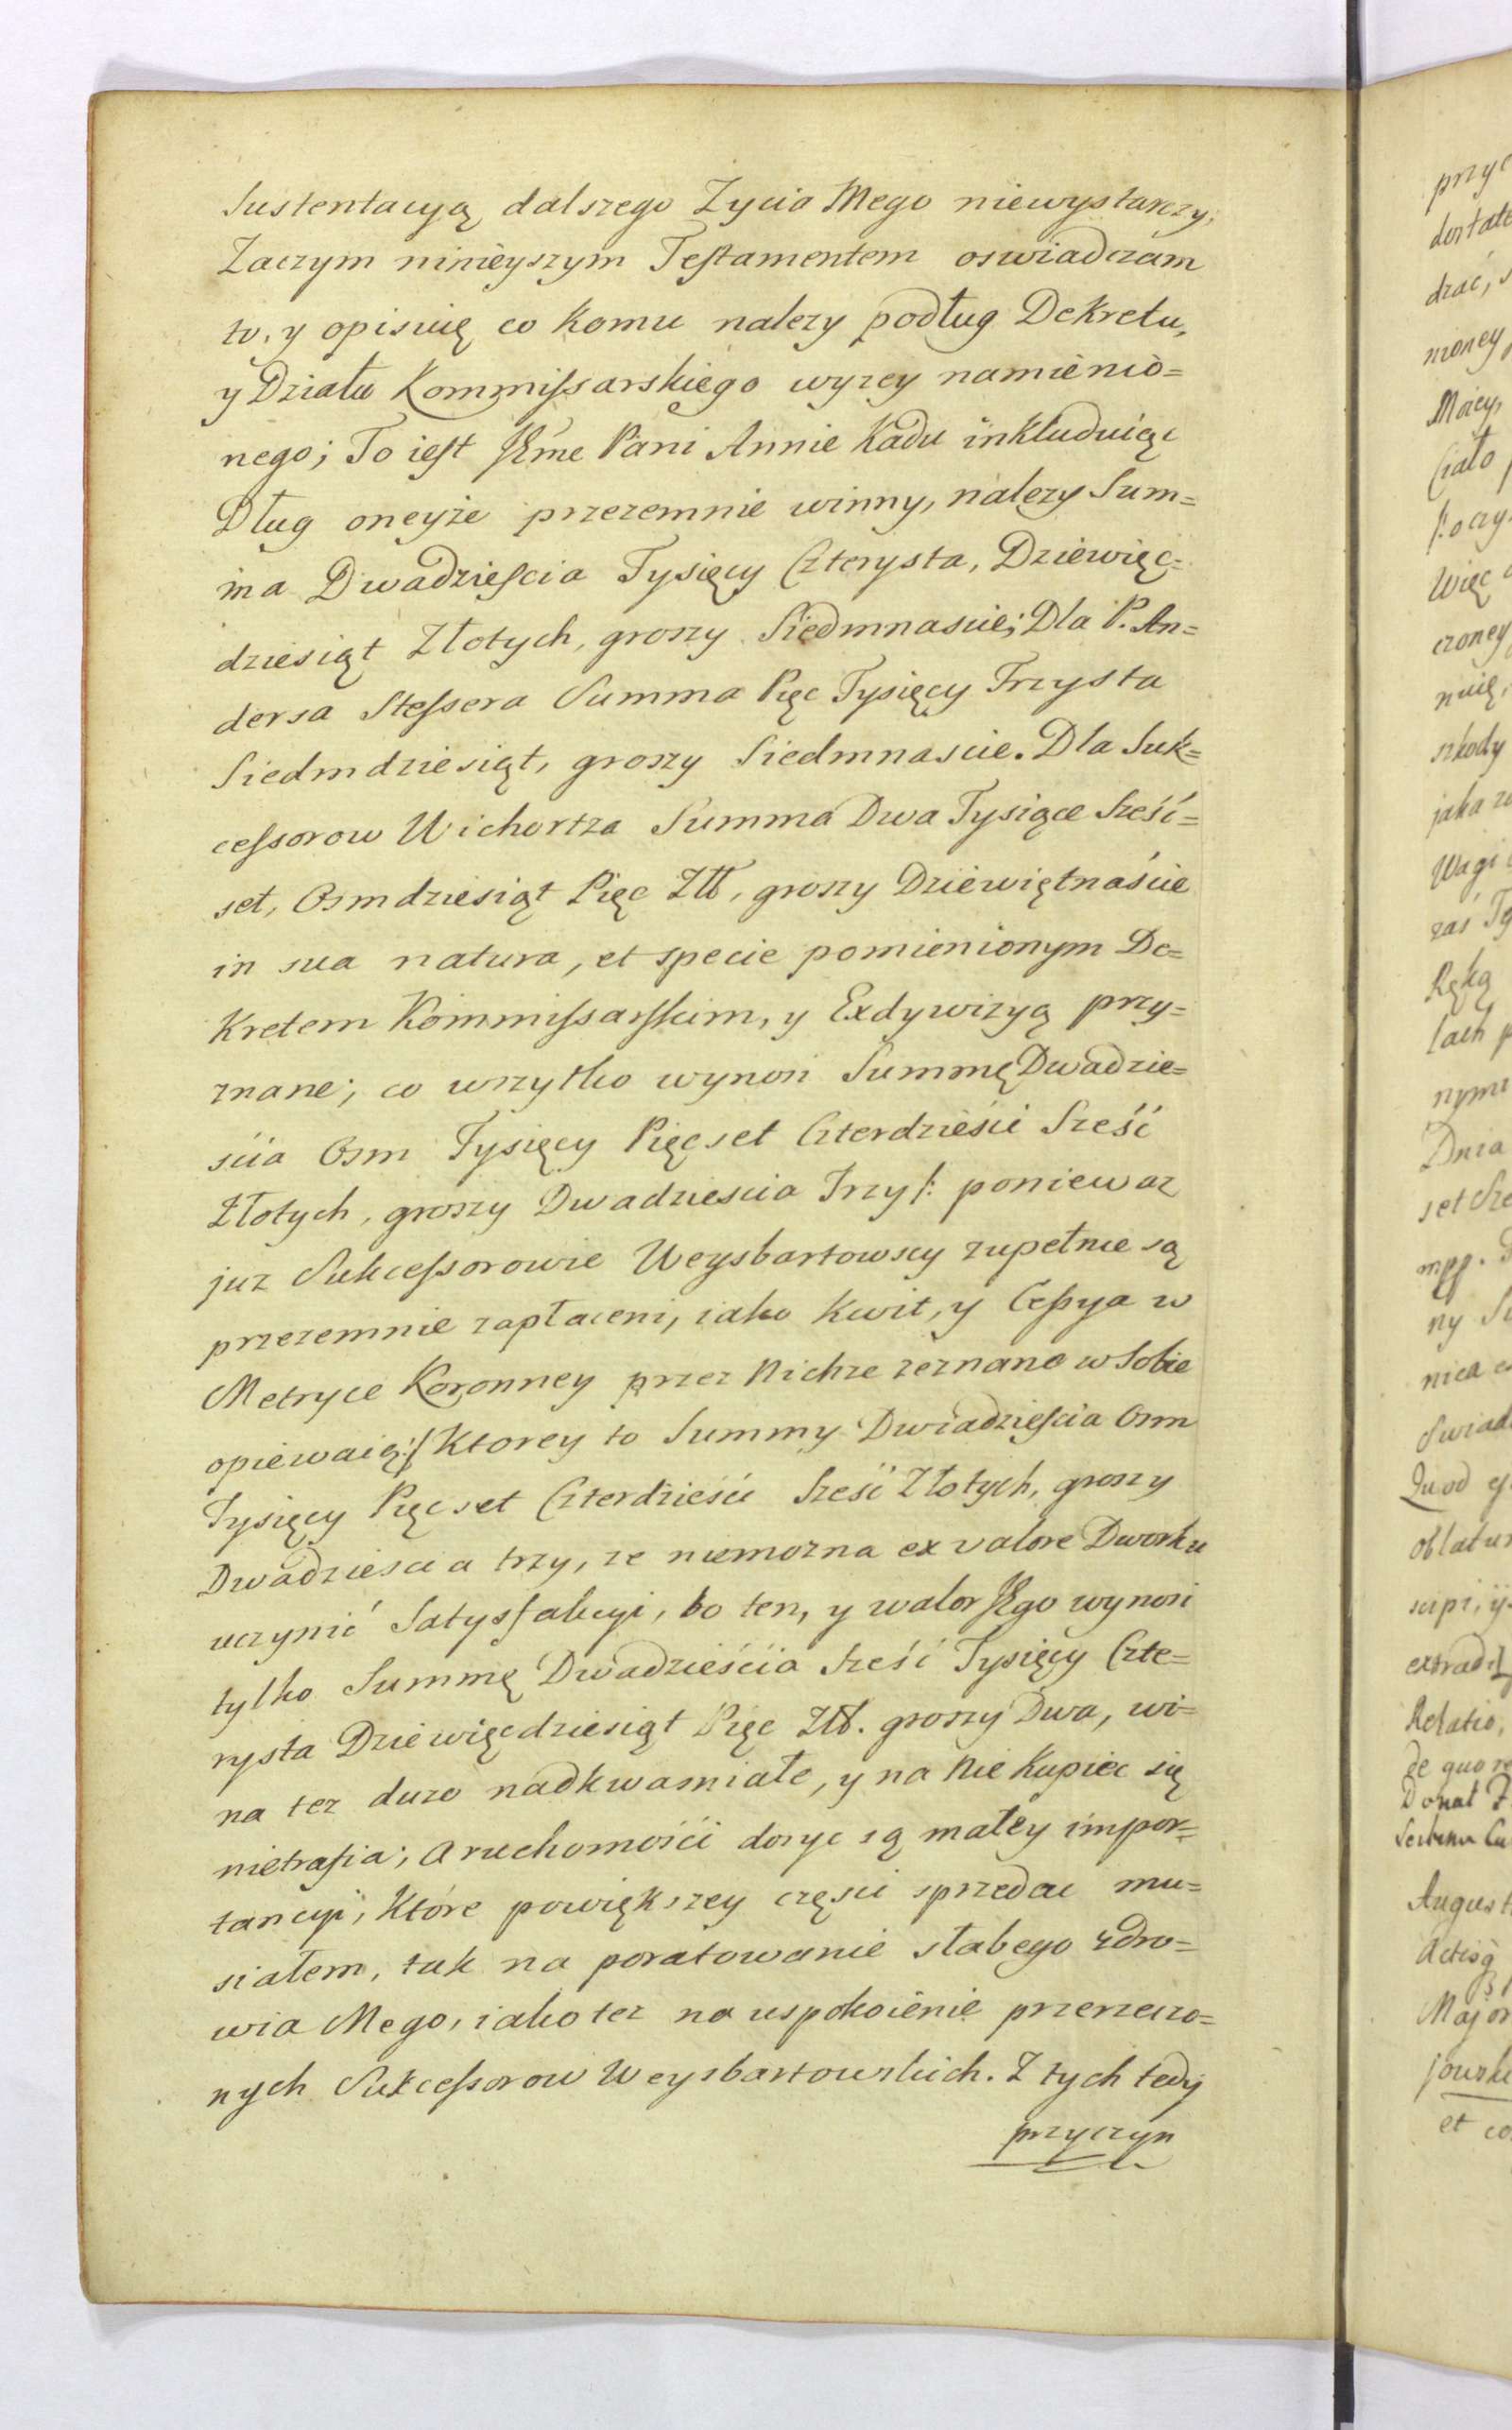 Sustentacyą dalszego Zycia Mego niewystarczy;
Zaczym ninieyszym Testamentem oswiadczam
to, y opisuię co komu nalezy podług Dekretu,
y Działu Kommissarskiego wyzey namienio=
nego; To iest JEme Pani Annie Kadu inkluduiąc
Dług oneyże przezemnie winny, nalezy Sum=
ma Dwadziescia Tysięcy Czterysta, Dziewięc=
dziesiąt Złotych, groszy Siedmnascie; Dla P. An=
dersa Stessera Summa Pięc Tysięcy Trzysta
Siedmdziesiąt, groszy Siedmnascie. Dla Suk=
cessorow Wichertza Summa Dwa Tysiące Sześć=
set, Osmdziesiąt Pięc Złł, groszy Dziewiętnaście
in sua natura, et specie pomienionym De=
kretem Kommissarskim, y Exdywizyą przy=
znane; co wszytko wynosi Summę Dwadzie=
ścia Osm Tysięcy Pięcset Czterdzieści Sześć
Złotych, groszy Dwadziescia Trzy /: poniewaz
juz Sukcessorowie Weysbartowscy zupełnie są
przezemnie zapłaceni, iako Kwit, y Cessya w
Metryce Koronney przez Nichze zeznane w Sobie
opiewaią :/ Ktorey to Summy Dwadziescia Osm
Tysięcy Pięcset Czterdzieści Sześć Złotych, groszy
Dwadziescia trzy, ze niemozna ex valore Dworku
uczynić Satysfakcyi, bo ten, y walor Jego wynosi
tylko Summę Dwadzieścia Sześć Tysięcy Czte=
rysta Dziewięcdziesiąt Pięc Złł. groszy Dwa, wi=
na tez duzo nadkwasniałe, y na Nie Kupiec się
nietrafia; a ruchomości dosyc są małey impor=
tancyi, Które powiększey częsci sprzedac mu=
siałem, tak na poratowanie słabego zdro=
wia Mego, iako tez na uspokoienie przerzeczo=
nych Sukcessorow Weysbartowskich. Z tych tedy
przyczyn